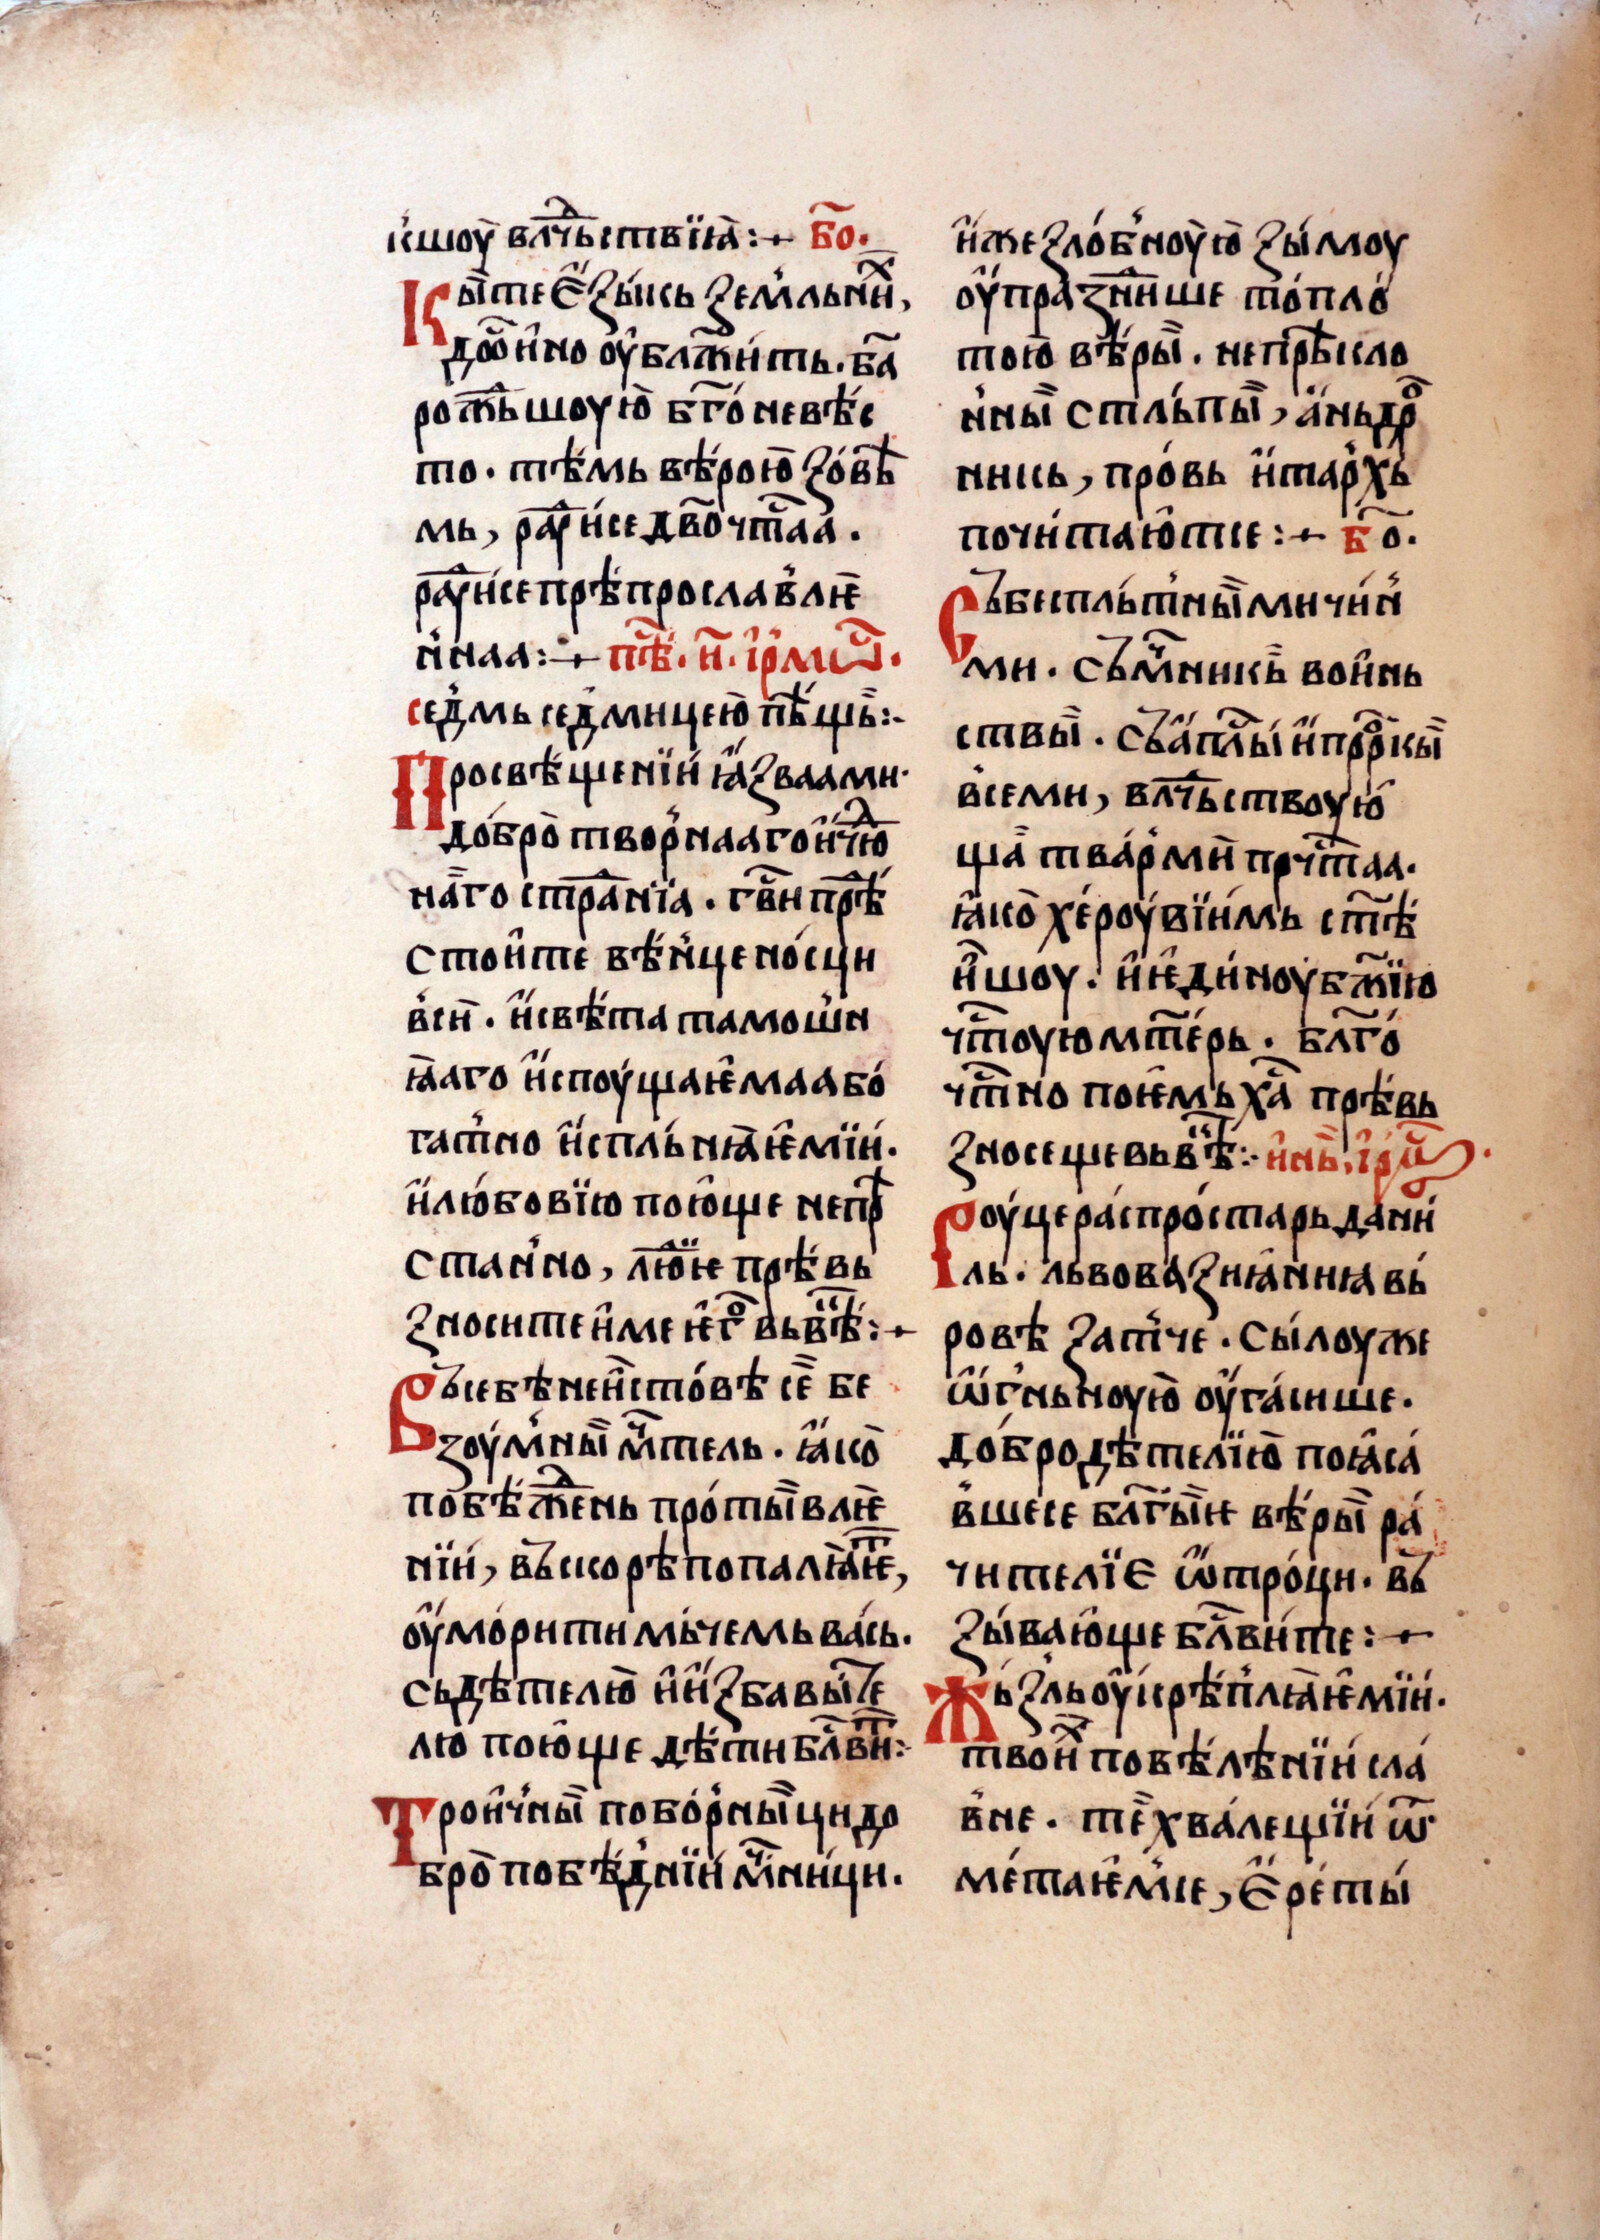 к̀шоу̀ влⷣчьствїꙗ̀:+ бо҃.
Кы̏те є҆ꙁы́кь ꙁемⷧ҇ьнⷯи,
дⷭ҇ои҆но оу҆блаж҃и́ть. ба҃
рож҃ьшоую̀ бг҃о́невѣ́с
то. тѣ́мь вѣ́рою̀ ꙁо́вѣ
мь, ра҃ꙋи́се дв҃о чт҃аа.
ра҃ꙋи́се прѣ́прославлѥ̀
н҆наа:+ пⷭ҇ѣ. и҃. і҆рмѡⷭ҇.
се́дмь се́дмицею̀ пѣ́щь:-
Просвѣ́щенїи́ ꙗ҆ꙁваами.
до́бро̀ творнааго и҆чⷧ҇ю
на̏го стра҃нїа. гв҃и прⷣѣ
стои҆те вѣ́нценосци
вси̏. и҆свѣ́та тамошн
ꙗ̀аго и҆споу́щаѥ҆маа бо́
гатно и҆спльнꙗ̀ѥ҆мїи́.
и҆лю́бовїю пою҆ще непрⷣ
стан̀но, лю҃дїѥ прѣ́вь
ꙁноси́те и҆ме ѥ҆гⷪ҇ вьвⷭ҇ѣ:+
Въсебѣ́ неи̏сто́вѣ се̏ бе
ꙁоу́мны̏ мⷱ҇тель. ꙗ҆ко̀
по̀бѣ́жⷣень про́ты̏влѥ
нїи́, въскорѣ́ попалꙗ̀ѥⷮ,
оу҆мо́рити мьчемь ва́сь.
сьдѣ́телю̀ и҆и҆ꙁбавы́те
лю пою҆ще дѣ́ти бл҃виⷮ:-
Трои҆чны̏ побо́рны̏ци до
бро̀ побѣ́днїи́ мⷱ҇ни́ци.
и҆же ꙁло́бноу̀ю̀ ꙁы́моу
оу҆праꙁн҃ише то́пло́
тою̀ вѣ́ры̏. непрѣ́кло
н҆ны̏ стль́пы̏, а҆ньдрⷪ҇
никь, про́вь и҆тар́хь
почи́таю҆тсе:+ бо҃.
Събесплътны̏ми чи́н
ми. съмⷱ҇никѣ̏ вои҆нь
ствы̏. съа҆пⷭ҇лы́ и҆прⷪ҇ркы̏
всеми, влⷣчьствоую҆
ща̏ тва́рми̏ прчⷭ҇таа.
ꙗ҆ко̀ хе́роу́вїи́мь ст҃ѣ́
и҆шоу. и҆ѥ҆ди́ноу бж҃їю
чⷭ҇тоую мт҃е́рь. бл҃го́
чⷭ҇тно поѥ҆мь ха҃ прѣ́вь
ꙁносеще вьвⷭ҇ѣ:- и҆нь̏. і҆рмⷭ҇.
Роу́це ра́спро́старь дани
ль. львова ꙁиꙗ҆ниꙗ вь
ровѣ́ ꙁатче. сы́лоу же
ѡ҆гньноую̀ оу҆га́сише.
до́бродѣ́телїю̀ поꙗ҆са́
вшесе бл҃гы̏ѥ вѣ́ры̏ ра́
чителїє ѡ҆тро́ци. въ
ꙁы́ваю҆ще бл҃ви́те:+
Жь́ꙁль оу҆крѣ́плꙗ̀ѥ҆мїи́.
твоиⷯ повѣ́лѣнїи́ сла́
вне. те̏ хва́лещїи́ ѿ
ме́таѥ҆мсе, є҆ре́ты́